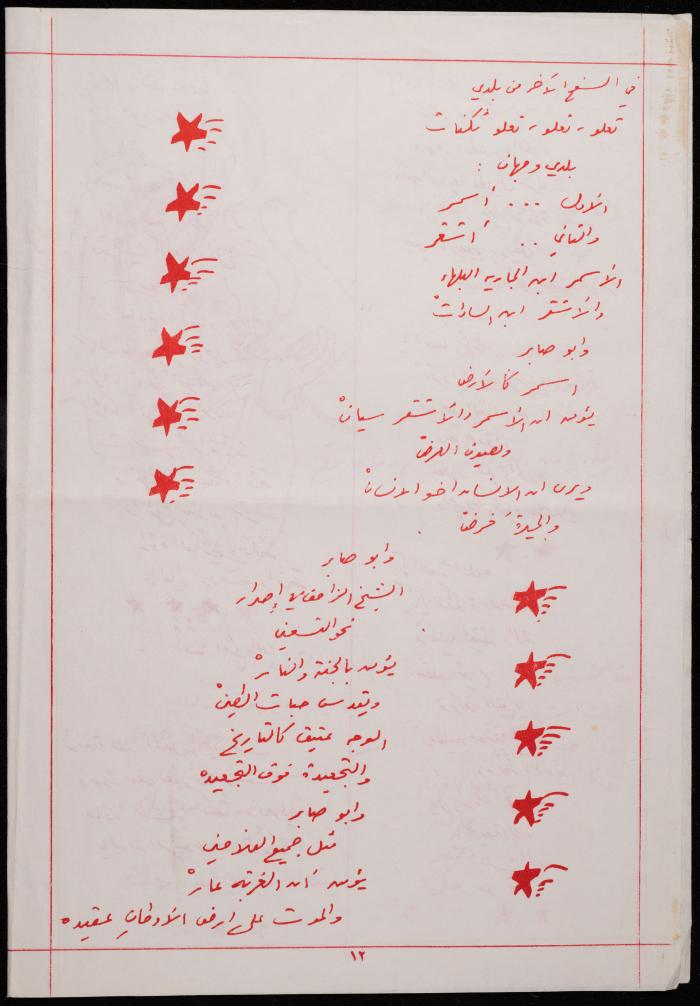 في السفح الآخر من بلدي
تعلو، تعلو، تعلو ثكنات
بلدي وجهان :
الأول ... أسمر
والثاني .. أشقر
الأسمر ابن الجاريه البلهاء
والأشقر ابن السادات
وابو صابر
اسمر كالأرض
يؤمن ان الأسمر والأشقر سيانْ
ويصون العرض
ويرى ان الانسان اخو الانسانْ
والجيرةَ فرض
وابو صابر
الشيخ الزاحف في إصرار
نحو التسعين
يؤمن بالجنة والنارْ
ويقدس حبات الطينْ
الوجه عتيق كالتاريخ
والتجعيدة فوق التجعيده
وابو صابر
مثل جميع الفلاحين
يؤمن أن الغربه عارْ
والموت على ارض الأوطانِ عقيده
١٢